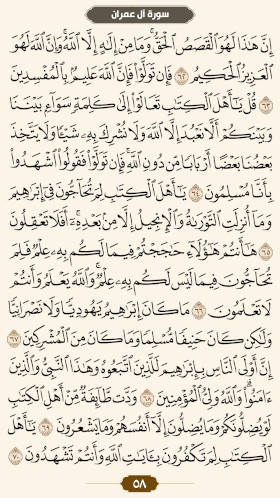 سورة آل عمران
إِنَّ هَٰذَا لَهُوَ ٱلْقَصَصُ ٱلْحَقُّ ۚ وَمَا مِنْ إِلَٰهٍ إِلَّا ٱللَّهُ ۚ وَإِنَّ ٱللَّهَ لَهُوَ
ٱلْعَزِيزُ ٱلْحَكِيمُ ٦٢ فَإِن تَوَلَّوْا۟ فَإِنَّ ٱللَّهَ عَلِيمٌۢ بِٱلْمُفْسِدِينَ
٦٣ قُلْ يَٰٓأَهْلَ ٱلْكِتَٰبِ تَعَالَوْا۟ إِلَىٰ كَلِمَةٍ سَوَآءٍۭ بَيْنَنَا
وَبَيْنَكُمْ أَلَّا نَعْبُدَ إِلَّا ٱللَّهَ وَلَا نُشْرِكَ بِهِۦ شَيْـًٔا وَلَا يَتَّخِذَ
بَعْضُنَا بَعْضًا أَرْبَابًا مِّن دُونِ ٱللَّهِ ۚ فَإِن تَوَلَّوْا۟ فَقُولُوا۟ ٱشْهَدُوا۟
بِأَنَّا مُسْلِمُونَ ٦٤ يَٰٓأَهْلَ ٱلْكِتَٰبِ لِمَ تُحَآجُّونَ فِىٓ إِبْرَٰهِيمَ
وَمَآ أُنزِلَتِ ٱلتَّوْرَىٰةُ وَٱلْإِنجِيلُ إِلَّا مِنۢ بَعْدِهِۦٓ ۚ أَفَلَا تَعْقِلُونَ
٦٥ هَٰٓأَنتُمْ هَٰٓؤُلَآءِ حَٰجَجْتُمْ فِيمَا لَكُم بِهِۦ عِلْمٌ فَلِمَ
تُحَآجُّونَ فِيمَا لَيْسَ لَكُم بِهِۦ عِلْمٌ ۚ وَٱللَّهُ يَعْلَمُ وَأَنتُمْ
لَا تَعْلَمُونَ ٦٦ مَا كَانَ إِبْرَٰهِيمُ يَهُودِيًّا وَلَا نَصْرَانِيًّا
وَلَٰكِن كَانَ حَنِيفًا مُّسْلِمًا وَمَا كَانَ مِنَ ٱلْمُشْرِكِينَ ٦٧
إِنَّ أَوْلَى ٱلنَّاسِ بِإِبْرَٰهِيمَ لَلَّذِينَ ٱتَّبَعُوهُ وَهَٰذَا ٱلنَّبِىُّ وَٱلَّذِينَ
ءَامَنُوا۟ ۗ وَٱللَّهُ وَلِىُّ ٱلْمُؤْمِنِينَ ٦٨ وَدَّت طَّآئِفَةٌ مِّنْ أَهْلِ ٱلْكِتَٰبِ
لَوْ يُضِلُّونَكُمْ وَمَا يُضِلُّونَ إِلَّآ أَنفُسَهُمْ وَمَا يَشْعُرُونَ ٦٩ يَٰٓأَهْلَ
ٱلْكِتَٰبِ لِمَ تَكْفُرُونَ بِـَٔايَٰتِ ٱللَّهِ وَأَنتُمْ تَشْهَدُونَ ٧٠
٥٨